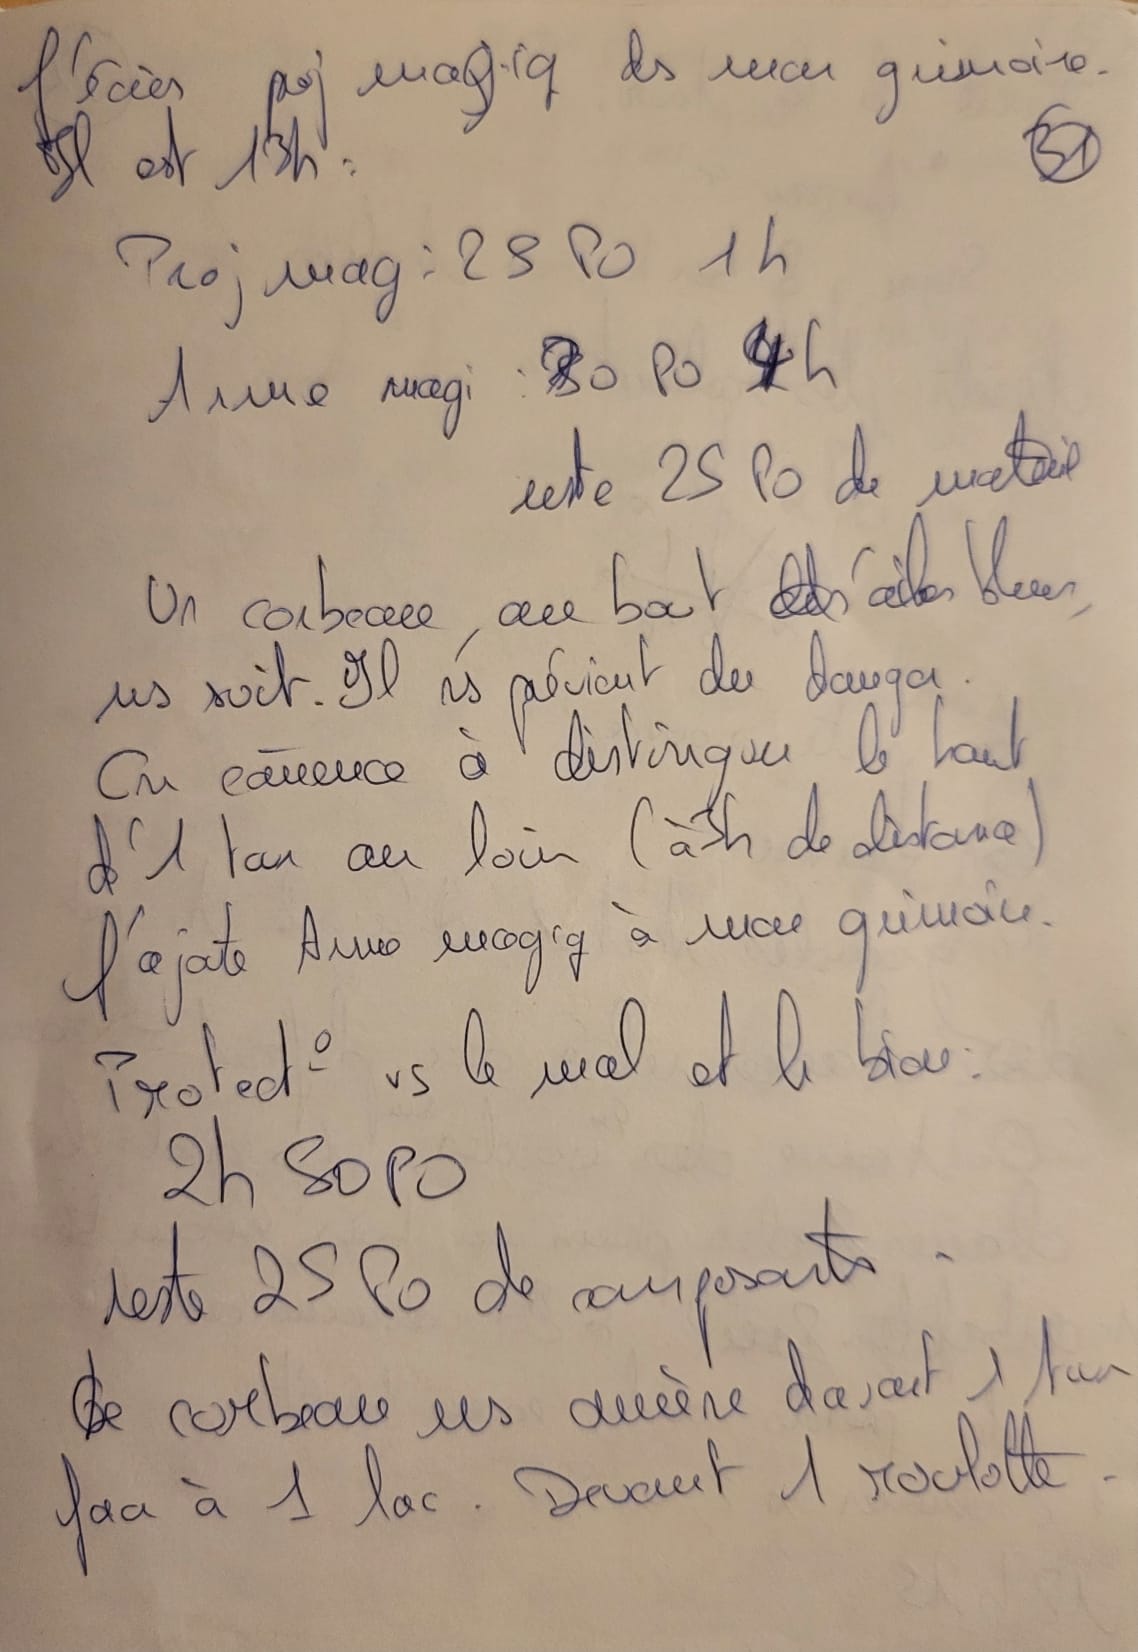 J'écris proj magiq ds mon grimoire.
Il est 13h :
31
Proj mag : 25 PO 1h
Arme magi : 80 PO 4h
reste 25 PO de matériel
Un corbeau, au bout d'ailes bleues,
ns suit. Il ns prévient du danger.
On cōmence à distinguer le haut
d'1 tour au loin (à 3h de distance)
J'ajoute Arme magiq à mon grimoire.
Protect° vs le mal et le bien :
2h 50PO
reste 25 PO de composants.
Le corbeau ns amène devant 1 tour
face à 1 lac. Devant 1 roulotte.